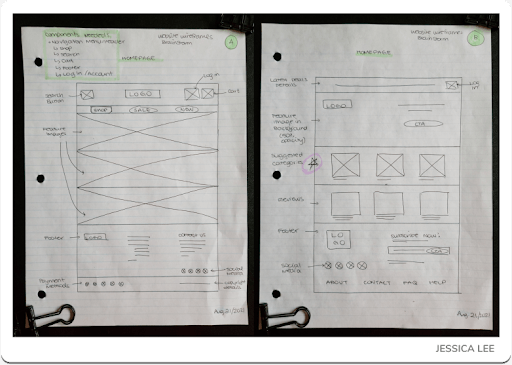 Components Needed:
- Navigation Menu-Header
Shop
Search
Cart
Footer
Log in / Account
Website Wireframes
Brainstorm
A
HOMEPAGE
LOG IN
Search
Button
LOGO
CART
SHOP
SALE
Feature
Images
Footer
LOGO
CONTACT US
Social
Media
Payment
Methods
Aug 21/2021
Website Wireframes
Brainstorm
B
HOMEPAGE
LOG
IN
LOGO
Feature
Image in
Background
opacity)
CTA
Suggested
Categories
Reviews
Footer
LO
GO
SUBSCRIBE NOW!
CTA
Social
Media
ABOUT
CONTACT
FAQ
HELP
Aug 21/2021
JESSICA LEE